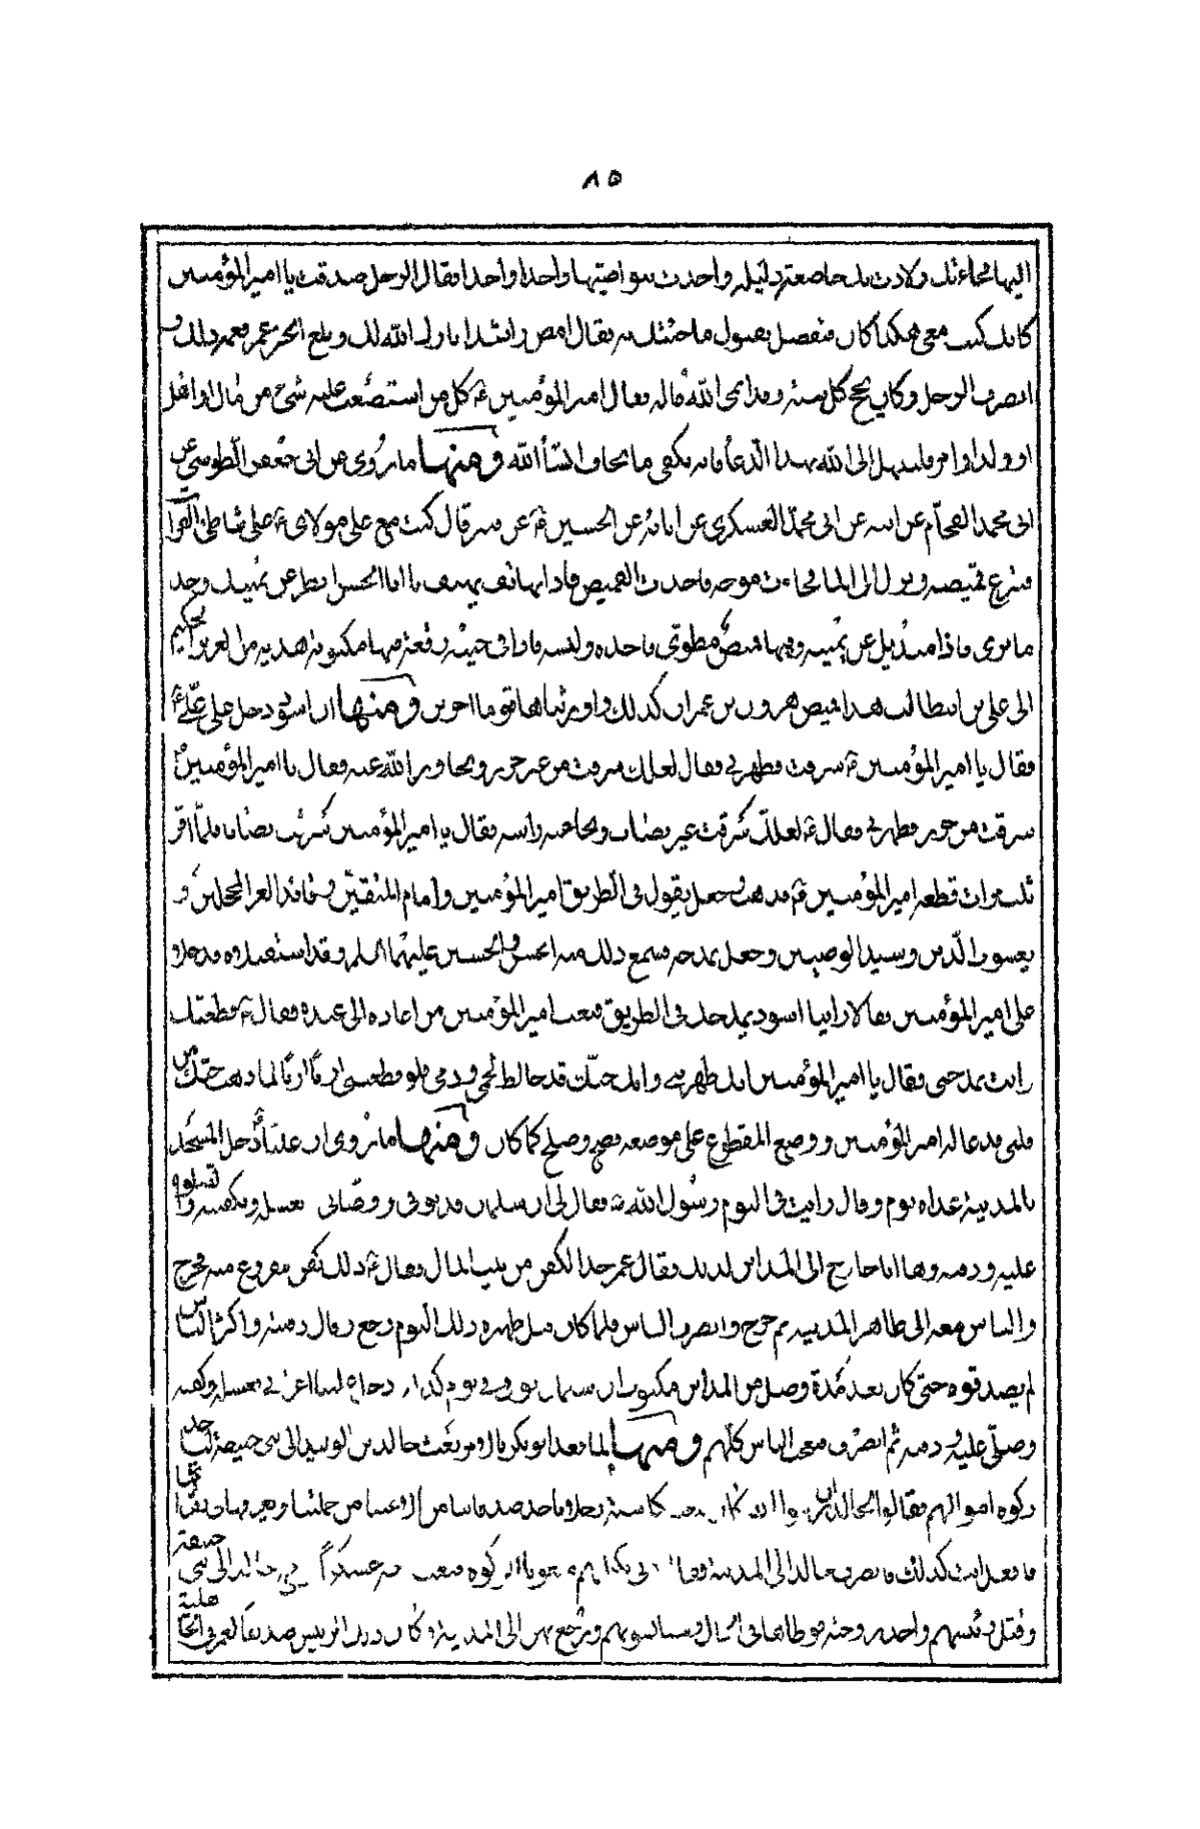 ٨٥
اليها فجاءتك ولاذت بك خاضعة ذليلة واخذت بنواصيها واحدا واحدا فقال الرجل صدقت يا امير المؤمنين
كانك كنت معي هكذا كان فتفضل بقبول ما جئتك به فقال امض راشدا بارك الله لك وبلغ الخبر عمر فغمه ذلك و
انصرف الرجل وكان يحج كل سنة وقد انمى الله ماله فقال امير المؤمنين ع كل من استصعب عليه شئ من مال او اهل
او ولد او امر فليبتهل الى الله بهذا الدعا فانه يكفى ما يخاف انشأ الله ومنها ما روى عن ابى جعفر الطوسي عن
ابى محمد الفحام عن ابيه عن ابى محمد العسكرى عن ابائه عن الحسين ع عن قنبر قال كنت مع على مولاى ع على شاطئ الفرا
فنزع قميصه ونزل الى الما فجاءت موجة فاخذت القميص فاذا بهاتف يهتف يا ابا الحسن انظر عن يمينك وخذ
ما ترى فاذا منديل عن يمينه وفيها قميص مطوى فاخذه ولبسه فاذا فى جيبه رقعة فيها مكتوب هدية من العزيز الحكيم
الى على بن ابيطالب هذا قميص هرون بن عمران كذلك واورثناها قوما اخرين ومنها ان اسود دخل على على ع
فقال يا امير المؤمنين ع سرقت فطهرنى فقال لعلك سرقت من غير حرز ونحا ورا الله عنه فقال يا امير المؤمنين
سرقت من حرز فطهرنى فقال ع لعلك سرقت غير نصاب ونحا عنه راسه فقال يا امير المؤمنين سرقت نصابا فلما اقر
ثلث مرات قطعه امير المؤمنين ع فذهب وجعل يقول فى الطريق امير المؤمنين وامام المتقين وقائد الغر المحجلين و
يعسوب الدين وسيد الوصيين وجعل يمدحه فسمع ذلك منه الحسن والحسين عليهما السلم وقد استقبلاه فدخلا
على امير المؤمنين فقالا راينا اسود يمدحك فى الطريق فبعث امير المؤمنين من اعاده الى عنده فقال ع قطعتك
وانت تمدحنى فقال يا امير المؤمنين انك طهرتنى وان حبك قد خالط لحمى ودمى فلو قطعتنى اربا اربا لما ذهب حبك من
قلبى فدعا له امير المؤمنين ووضع المقطوع على موضعه فصح وصلح كما كان ومنها ما روى ان عليا ع دخل المسجد
بالمدينة غداة يوم وقال رايت فى النوم رسول الله ص فقال لى ان سلمان قد توفى ووصانى بغسله وتكفينه والصلوة
عليه ودفنه وها انا خارج الى المداين لذلك فقال عمر خذ الكفن من بيت المال فقال ع ذلك مكفى مفروغ منه فخرج
والناس معه الى ظاهر المدينة ثم خرج وانصرف الناس فلما كان قبل ظهره ذلك اليوم رجع وقال دفنته واكثر الناس
لم يصدقوه حتى كان بعد مدة وصل من المداين مكتوب ان سلمان توفى فى يوم كذا ودخل علينا اعرابى فغسله وكفنه
وصلى عليه ودفنه ثم انصرف فتعجب الناس كلهم ومنها لما قعد ابو بكر بالامر بعث خالد بن الوليد الى بنى حنيفة لياخذ
زكوة اموالهم فقالوا لخالد ان
فافعل انت كذلك فانصرف خالد الى المدينة فقال لابى بكر انهم منعونا الزكوة فبعث معه عسكرا فرجع خالد الى بنى حنيفة
وقتل رئيسهم واخذ زوجته فوطاها فى الحال وسبا نسوتهم ورجع بهن الى المدينة وكان ذلك الرئيس صديقا لعمر فى الجاهلية